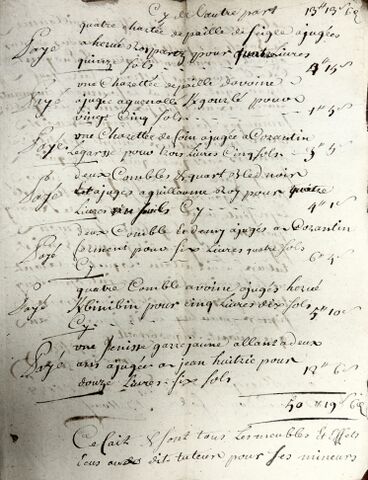 Cy de l'autre part 13tt 13s 6d
quatre chartée de paille de seigle ajugées
Payé a hervé pour quatre Livres
quinze sols 4tt 15s
une Charettée de paille d'avoine
Payé ajugée a guenollé K/gourlé pour
vingt Cinq sols 1tt 5s
Payé une Charettée de foin ajugée a Corantin
Legars pour trois Livres Cinq sols 3tt 5s
deux Combles & quart bled noir
Payé ajugés a guillaume Roy pour quatre
Livres un sols Cy 4tt 1s
deux Comble & demy ajugés a Corantin
Payé pour six Livres quatre sols
Cy 6tt 4s
quatre Comble avoine ajugés hervé
Payé K/binibin pour cinq Livres dix sols
Cy 5tt 10s
une Jenisse garre jaune allant a deux
Payé ans ajugée a jean huitric pour
douze Livres six sols 12tt 6s
50tt 19s 6d
Ce fait & sont tous Les meubles & Effets
dit tuteur pour ses mineurs